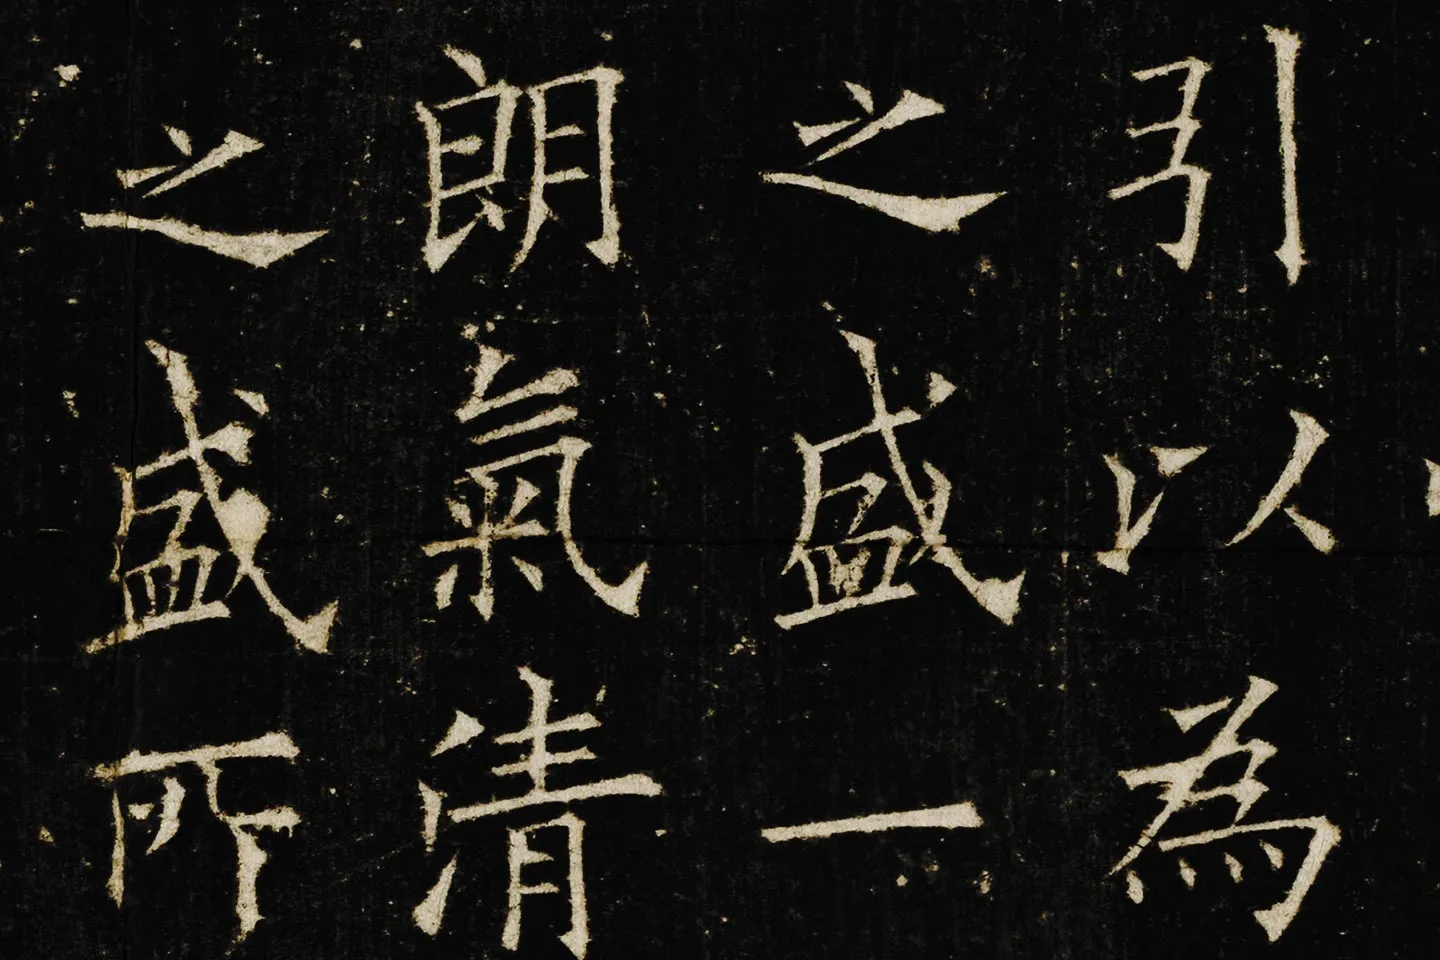 引以為
之盛一
朗氣清
之盛所